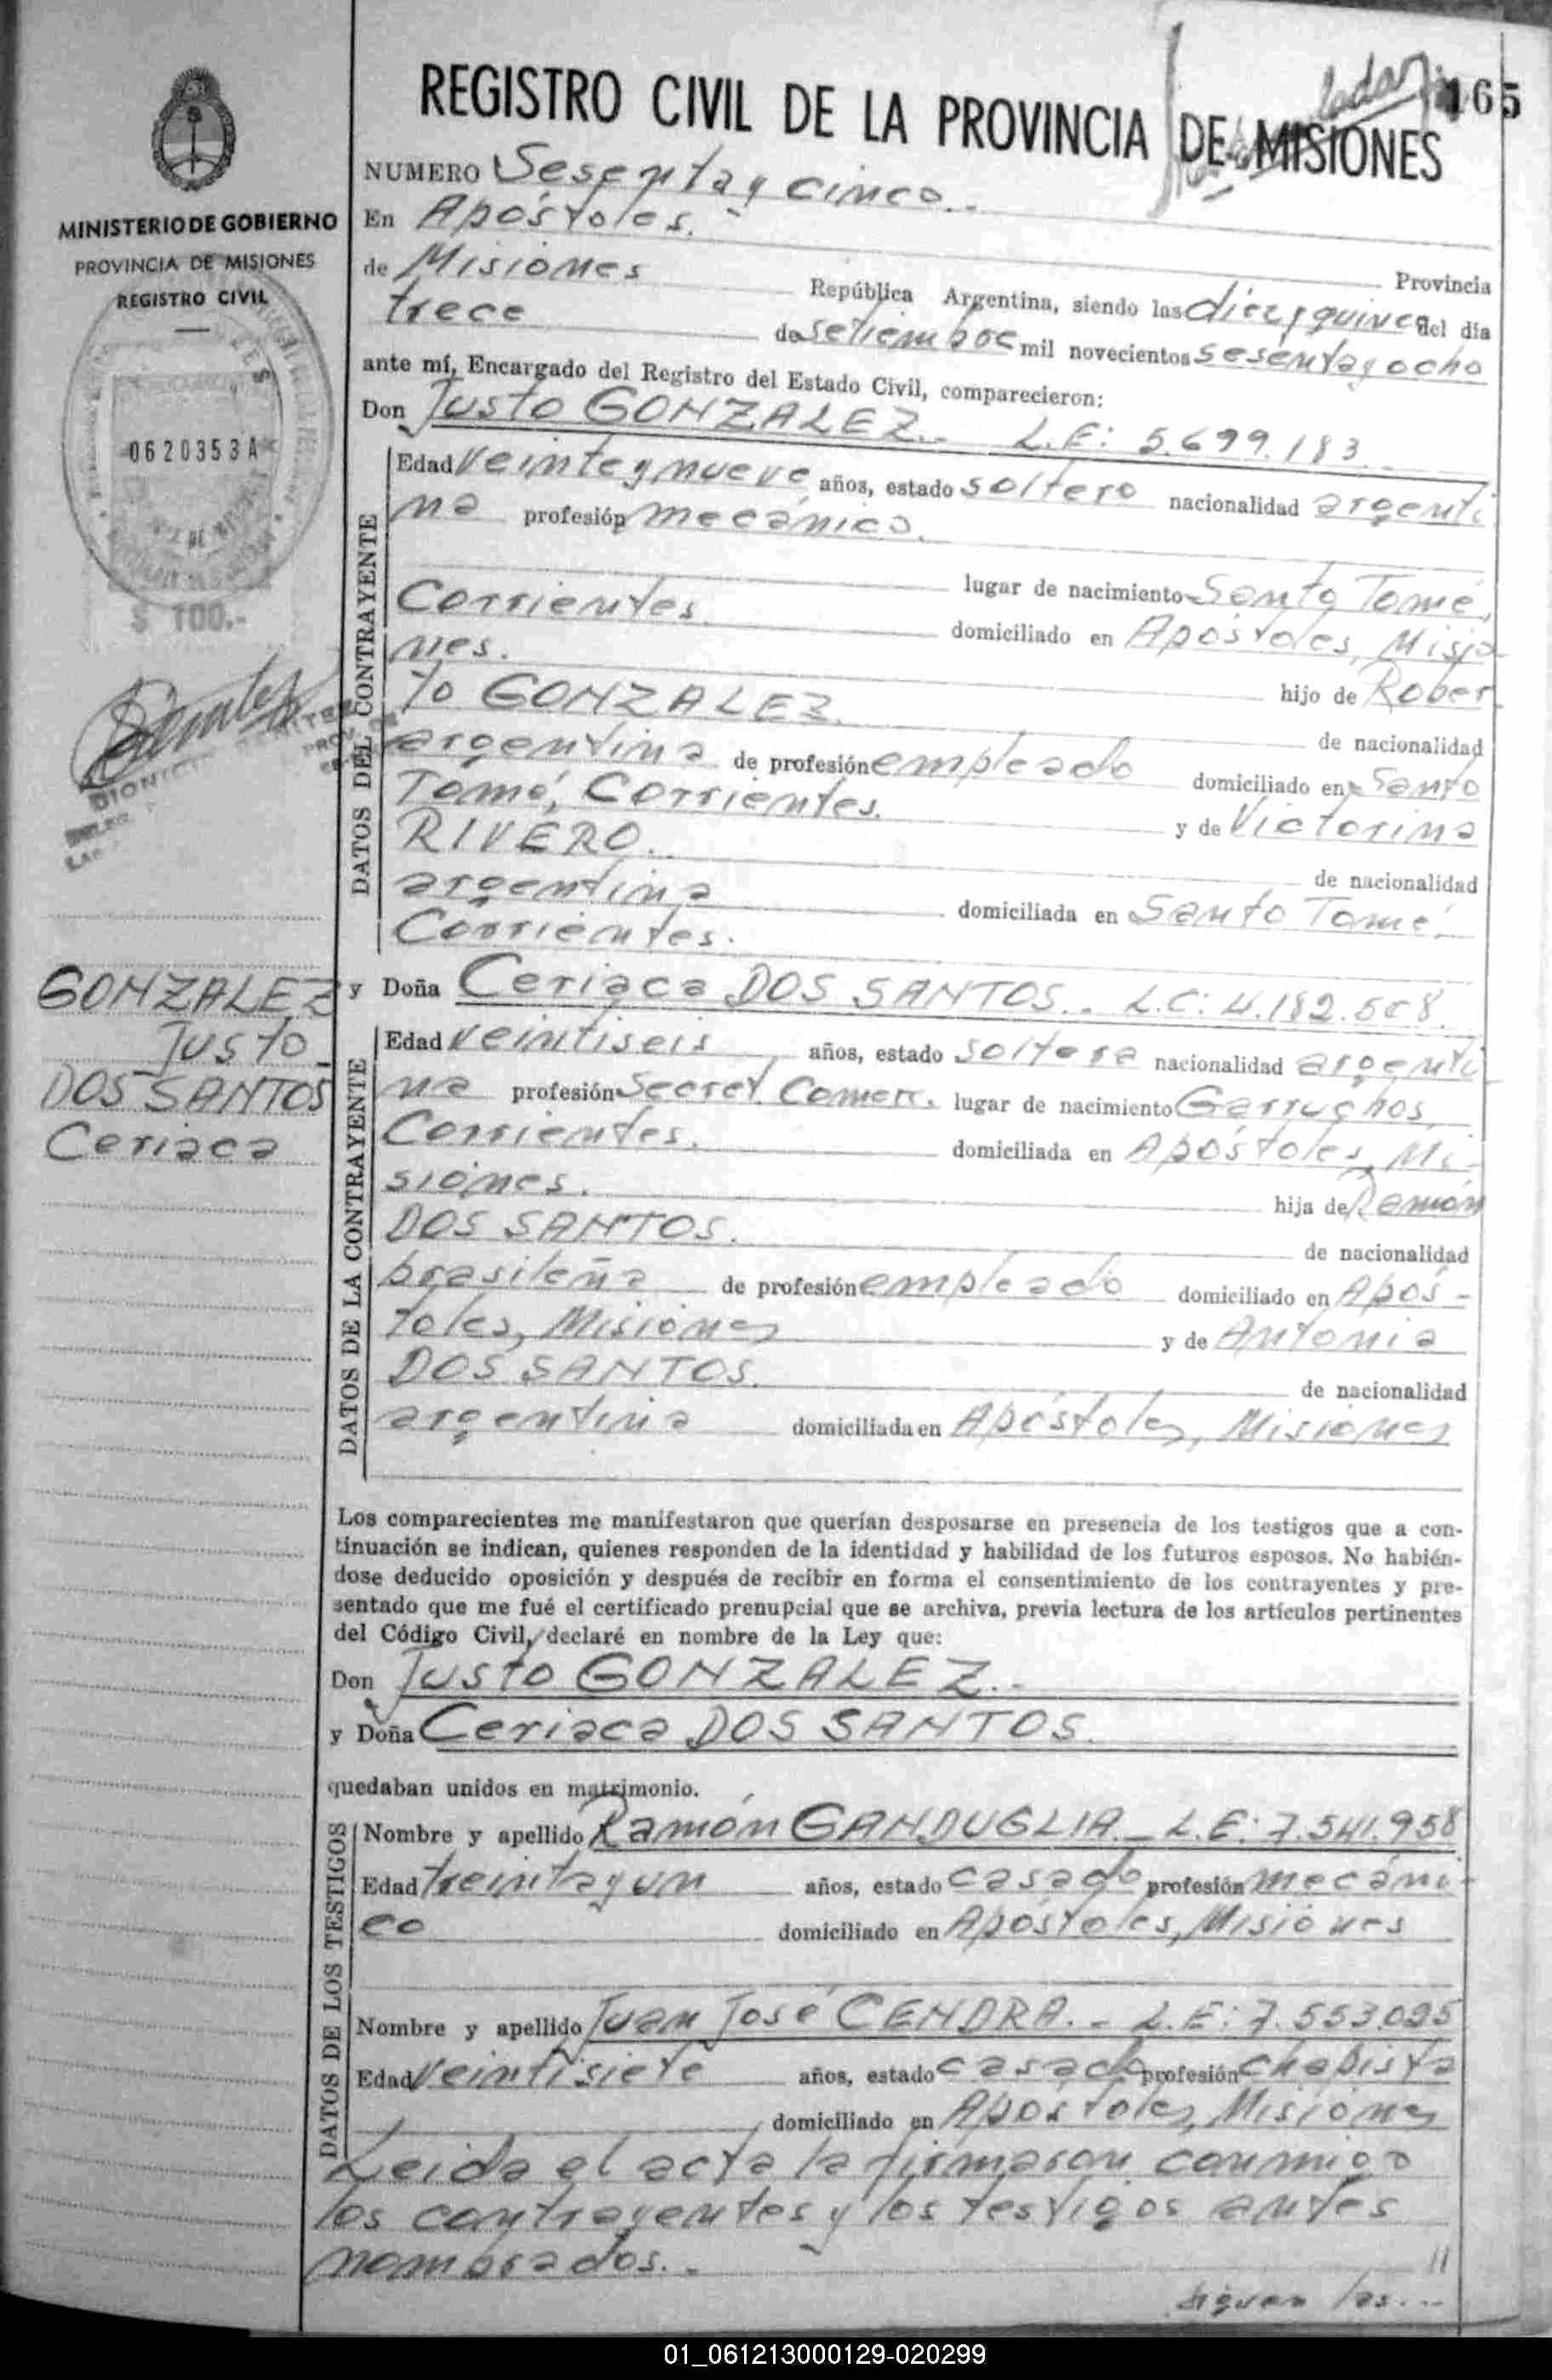 REGISTRO CIVIL DE LA PROVINCIA DE MISIONES
165
MINISTERIO DE GOBIERNO
PROVINCIA DE MISIONES
REGISTRO CIVIL
0620353A
$ 100.-
GONZALEZ
Justo
DOS SANTOS
Ceriaca
NUMERO Sesenta y cinco.-
En Apóstoles. Provincia
de Misiones República Argentina, siendo las diez y quince del día
trece de setiembre mil novecientos sesenta y ocho
ante mí, Encargado del Registro del Estado Civil, comparecieron:
Don Justo GONZALEZ.- L.E: 5.699.183
DATOS DEL CONTRAYENTE
Edad veinte y nueve años, estado soltero nacionalidad argenti
na profesión mecánico.
lugar de nacimiento Santo Tomé,
Corrientes domiciliado en Apóstoles, Misio
nes. hijo de Rober
to GONZALEZ. de nacionalidad
argentina de profesión empleado domiciliado en Santo
Tomé, Corrientes. y de Victorina
RIVERO. de nacionalidad
argentina domiciliada en Santo Tomé,
Corrientes.
y Doña Ceriaca DOS SANTOS.. L.C: 4.182.508.
DATOS DE LA CONTRAYENTE
Edad veintiseis años, estado soltera nacionalidad argenti
na profesión Secret. Comerc. lugar de nacimiento Garruchos,
Corrientes. domiciliada en Apóstoles, Mi-
siones. hija de Ramón
DOS SANTOS. de nacionalidad
brasileña de profesión empleado domiciliado en Após-
toles, Misiones y de Antonia
DOS SANTOS. de nacionalidad
argentina domiciliada en Apóstoles, Misiones
Los comparecientes me manifestaron que querían desposarse en presencia de los testigos que a con-
tinuación se indican, quienes responden de la identidad y habilidad de los futuros esposos. No habién-
dose deducido oposición y después de recibir en forma el consentimiento de los contrayentes y pre-
sentado que me fué el certificado prenupcial que se archiva, previa lectura de los artículos pertinentes
del Código Civil, declaré en nombre de la Ley que:
Don Justo GONZALEZ.-
y Doña Ceriaca DOS SANTOS.
quedaban unidos en matrimonio.
DATOS DE LOS TESTIGOS
Nombre y apellido Ramón GANDUGLIA.- L.E: 7.541.958
Edad treinta y un años, estado casado profesión mecáni-
co domiciliado en Apóstoles, Misiones
Nombre y apellido Juan José CENDRA.- L.E: 7.553.025
Edad veintisiete años, estado casado profesión chapista
domiciliado en Apóstoles, Misiones
Leida el acta la firmaron conmigo
los contrayentes y los testigos antes
nombrados.- //
siguen las...
01_061213000129-020299